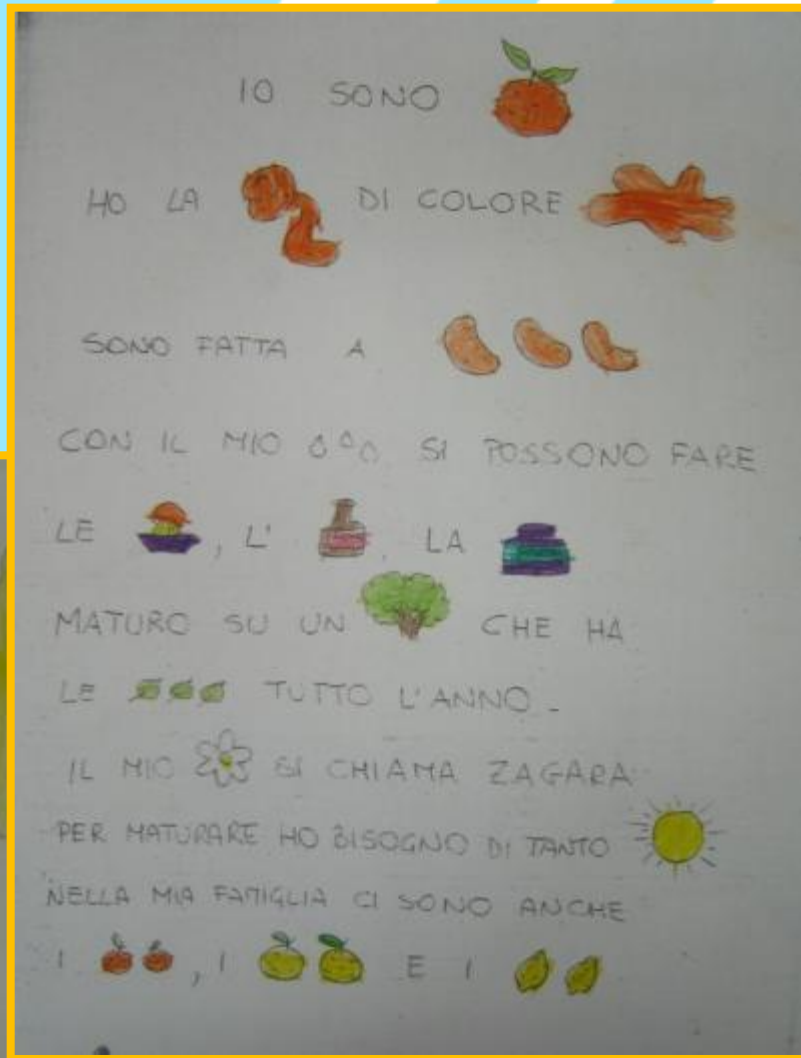 IO SONO
HO LA DI COLORE
SONO FATTA A
CON IL MIO SI POSSONO FARE
LE , L' , LA
MATURO SU UN CHE HA
LE TUTTO L'ANNO.
IL MIO SI CHIAMA ZAGARA
PER MATURARE HO BISOGNO DI TANTO
NELLA MIA FAMIGLIA CI SONO ANCHE
I , I E I